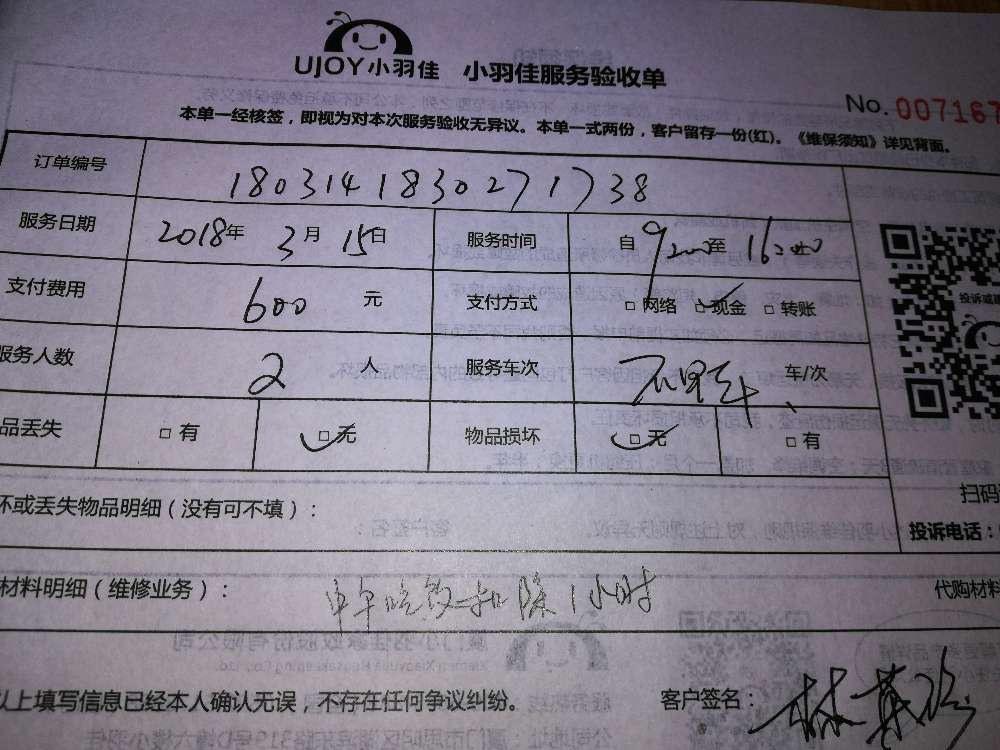 UJOY小羽佳 小羽佳服务验收单
No. 007167
本单一经核签，即视为对本次服务验收无异议。本单一式两份，客户留存一份(红)。《维保须知》详见背面。
订单编号 1803141830271738
服务日期 2018年 3月 15日 服务时间 自 9:00至 16:00
支付费用 600 元 支付方式 □ 网络 □ 现金 □ 转账
服务人数 2 人 服务车次 不用车 车/次
品丢失 □ 有 □ 无 物品损坏 □ 无 □ 有
投诉或
扫码
投诉电话：
坏或丢失物品明细（没有可不填）：
材料明细（维修业务）： 中午吃饭扣除1小时 代购材料
以上填写信息已经本人确认无误，不存在任何争议纠纷。 客户签名：